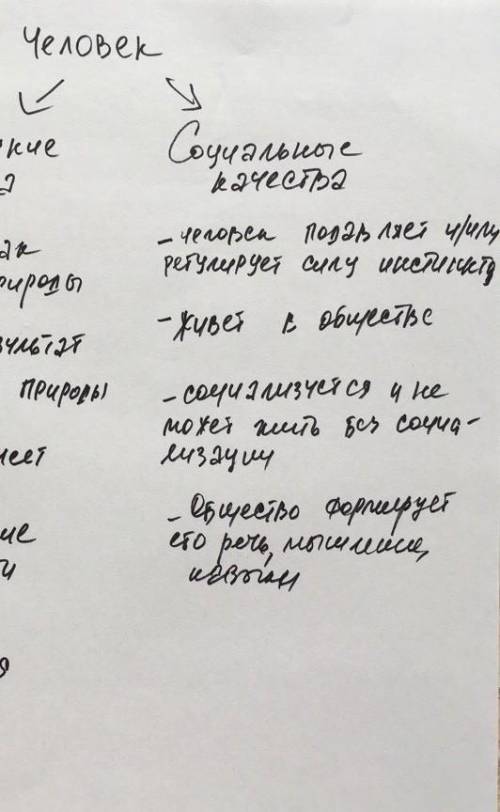 Человек
Социальные
качества
- человек подавляет и/или
регулирует силу инстинкта
- живет в обществе
- социализуется и не
может жить без социа-
лизации
- Общество формирует
его речь, мышление,
навыки
кие
ва
ак
природы
зультат
природы
меет
ие
и
я